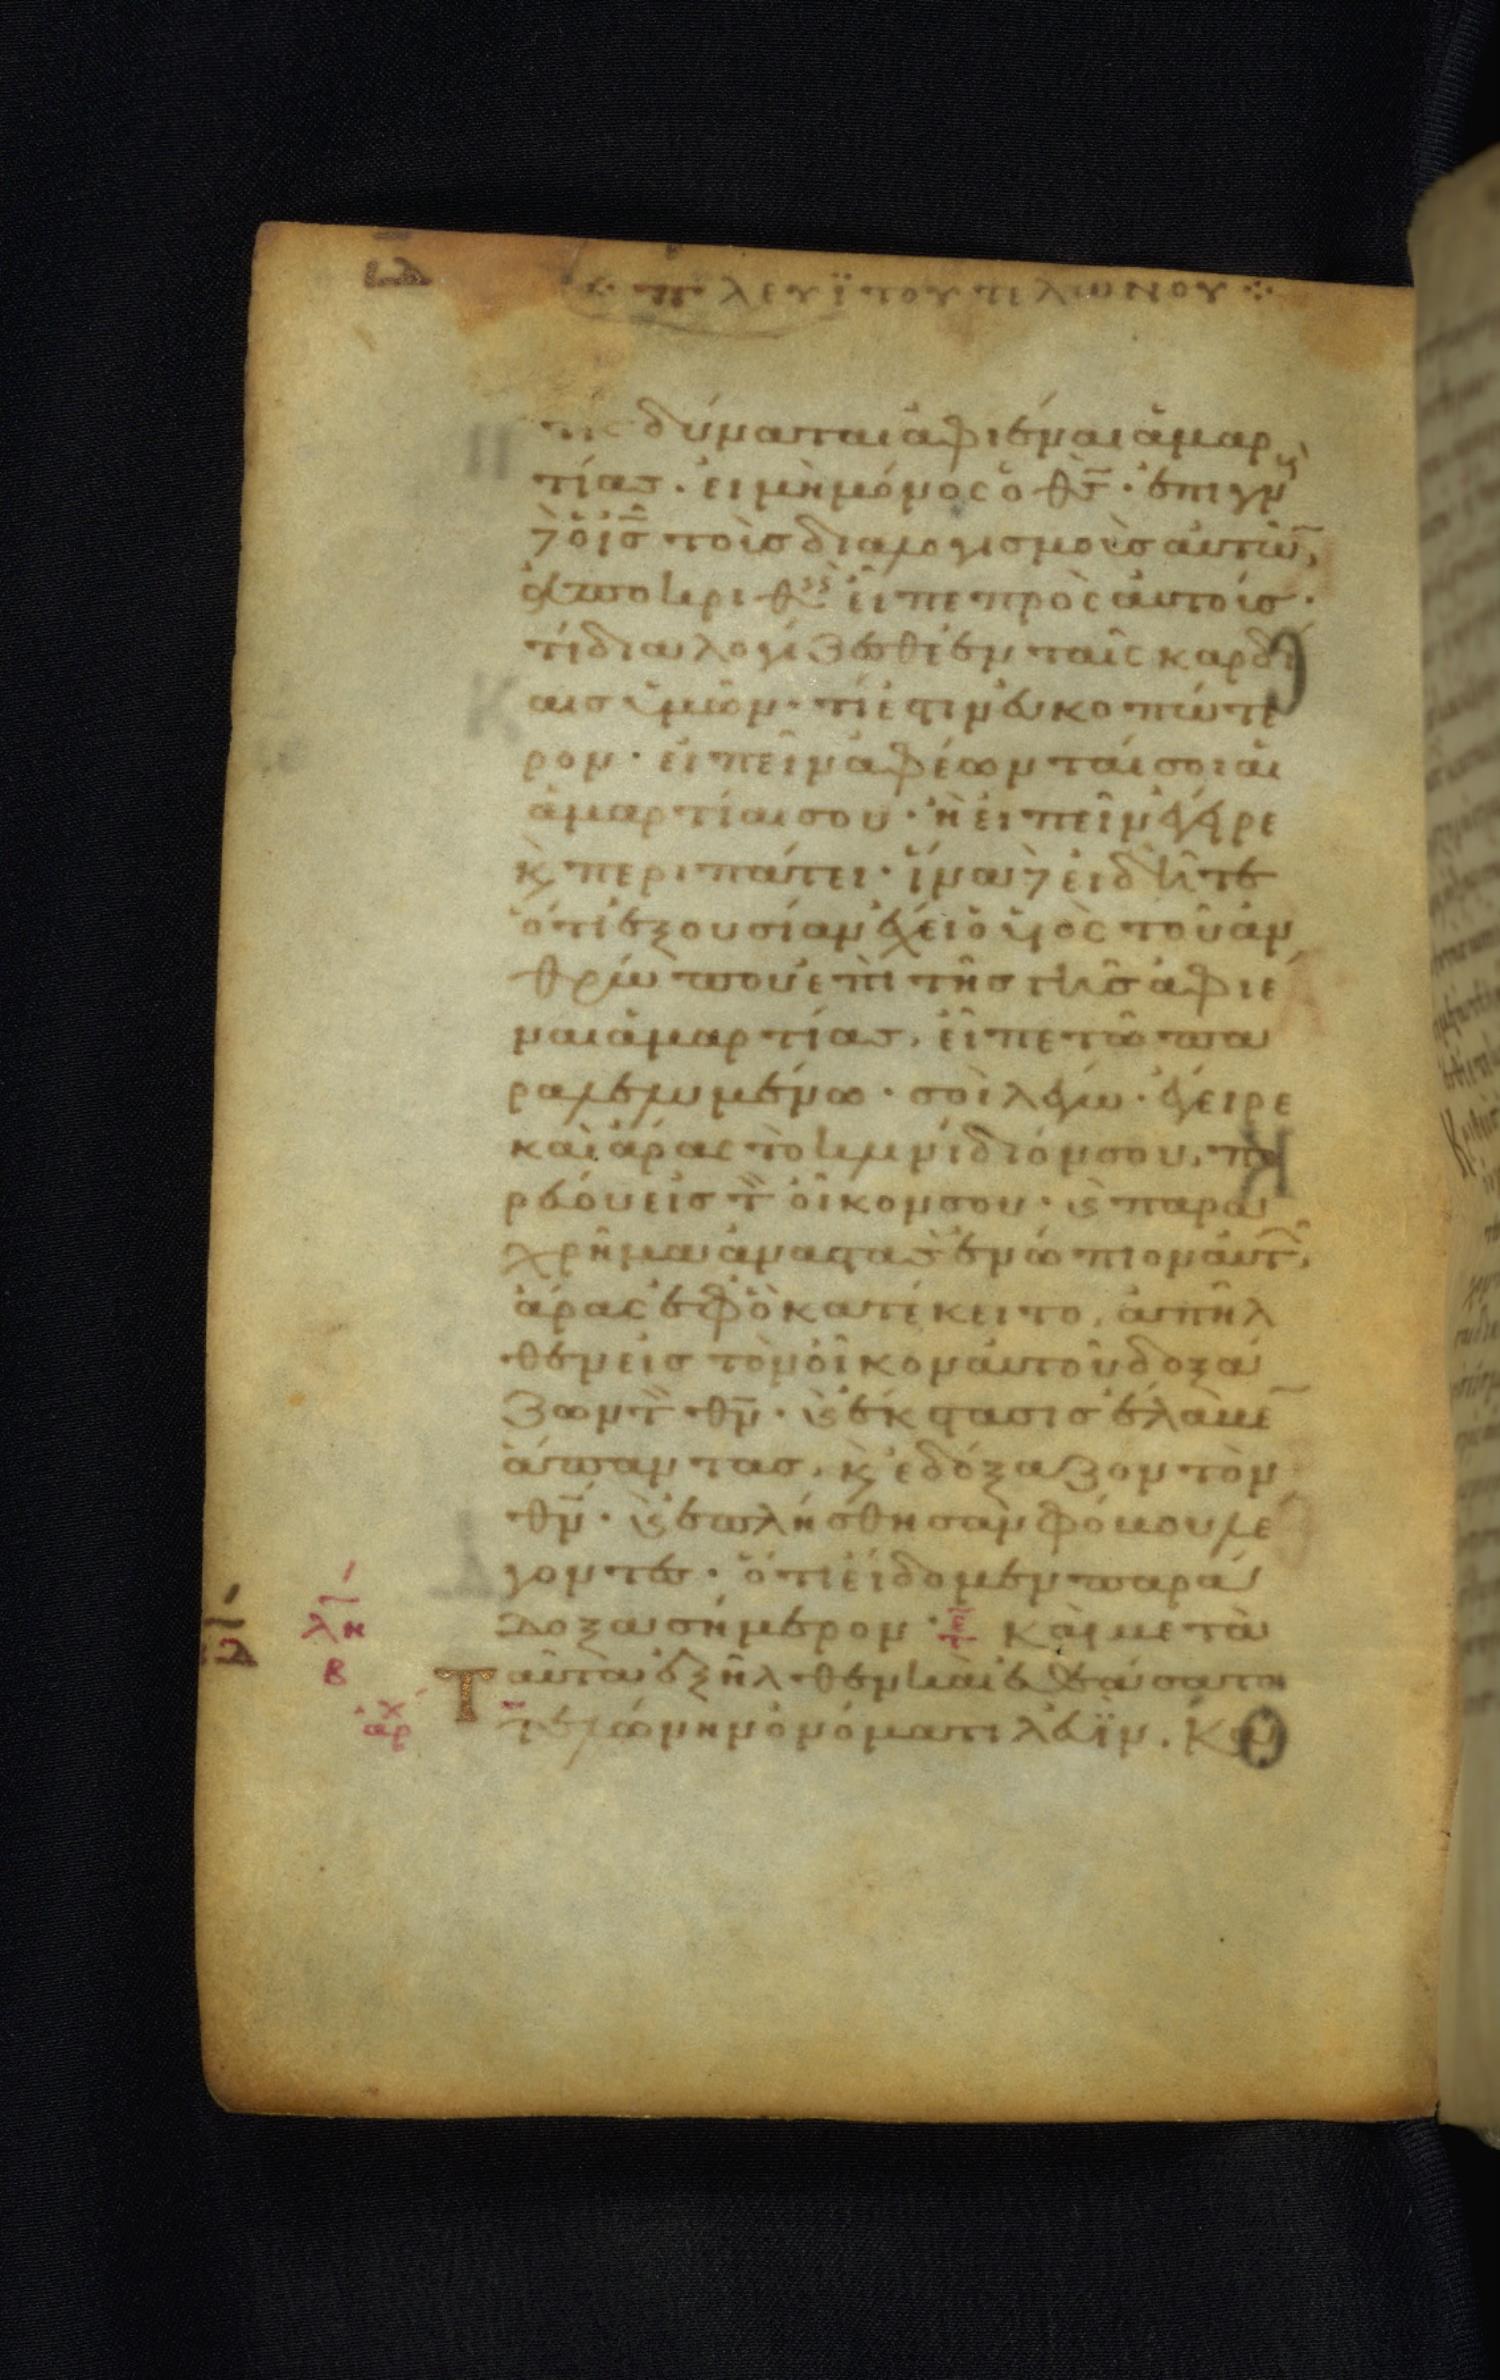 π λευϊ του τελωνου
τίς δύναται ἀφιέναι ἁμαρ
τίας. εἰ μὴ μόνος ὁ θς. ἐπιγν
δὲ ὁ ις τοὶς διαλογισμοὶς αὐτῶ,
ἀποκριθεὶς εἶπε πρὸς αὐτοίσ.
τί διαλογίζεσθε ἐν ταῖς καρδί
αις ὑμῶν. τί ἐστιν εὐκοπώτε
ρον. εἰπεῖν ἀφέωνταί σοι αἱ
ἁμαρτίαι σου. ἢ εἰπεῖν ἔγειρε
κ περιπάτει. ἵνα δὲ εἰδῆτε
ὅτι ἐξουσίαν ἔχει ὁ υἱὸς τοῦ ἀν
θρώπου ἐπὶ τῆς γῆς ἀφιέ
ναι ἁμαρτίας, εἶπε τῶ πα
ραλελυμένω. σοὶ λέγω. ἔγειρε
καὶ ἄρας τὸ κλινίδιόν σου, πο
ρεύου εἰς τ οἶκον σου. κ παρα
χρῆμα ἀναστὰς ἐνώπιον αὐτ,
ἄρας ἐφ ὃ κατέκειτο, ἀπῆλ
θεν εἰς τὸν οἶκον αὐτοῦ δοξά
ζων τ θν. κ ἔκστασις ἔλαβε
ἅπαντας, κ ἐδόξαζον τὸν
θν. κ ἐπλήσθησαν φόβου λέ
γοντες. ὅτι εἴδομεν παρά
δοξα σήμερον. καὶ μετὰ
λη
β
ταῦτα ἐξῆλθεν καὶ ἐθεάσατο
αρχ
τελώνην ὀνόματι λευϊν. κα